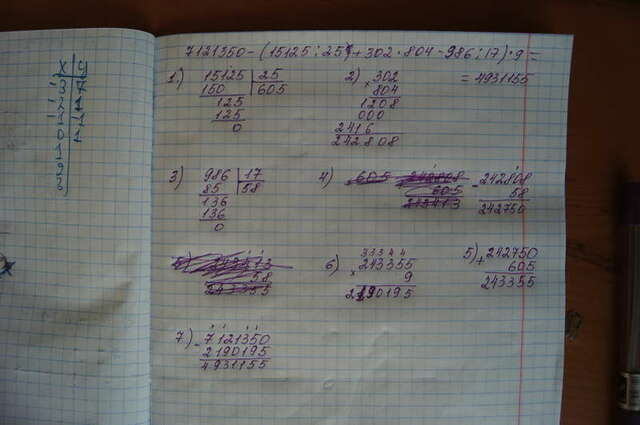 7121350-(15125:25+302·804-986:17)·9=
=4931155
1) 15125 | 25
150 | 605
125
125
0
2) × 302
804
1208
000
2416
242808
3) 986 | 17
85 | 58
136
136
0
4) - 242808
58
242750
5) + 242750
605
243355
6) 33344
× 243355
9
2190195
7) - 7121350
2190195
4931155